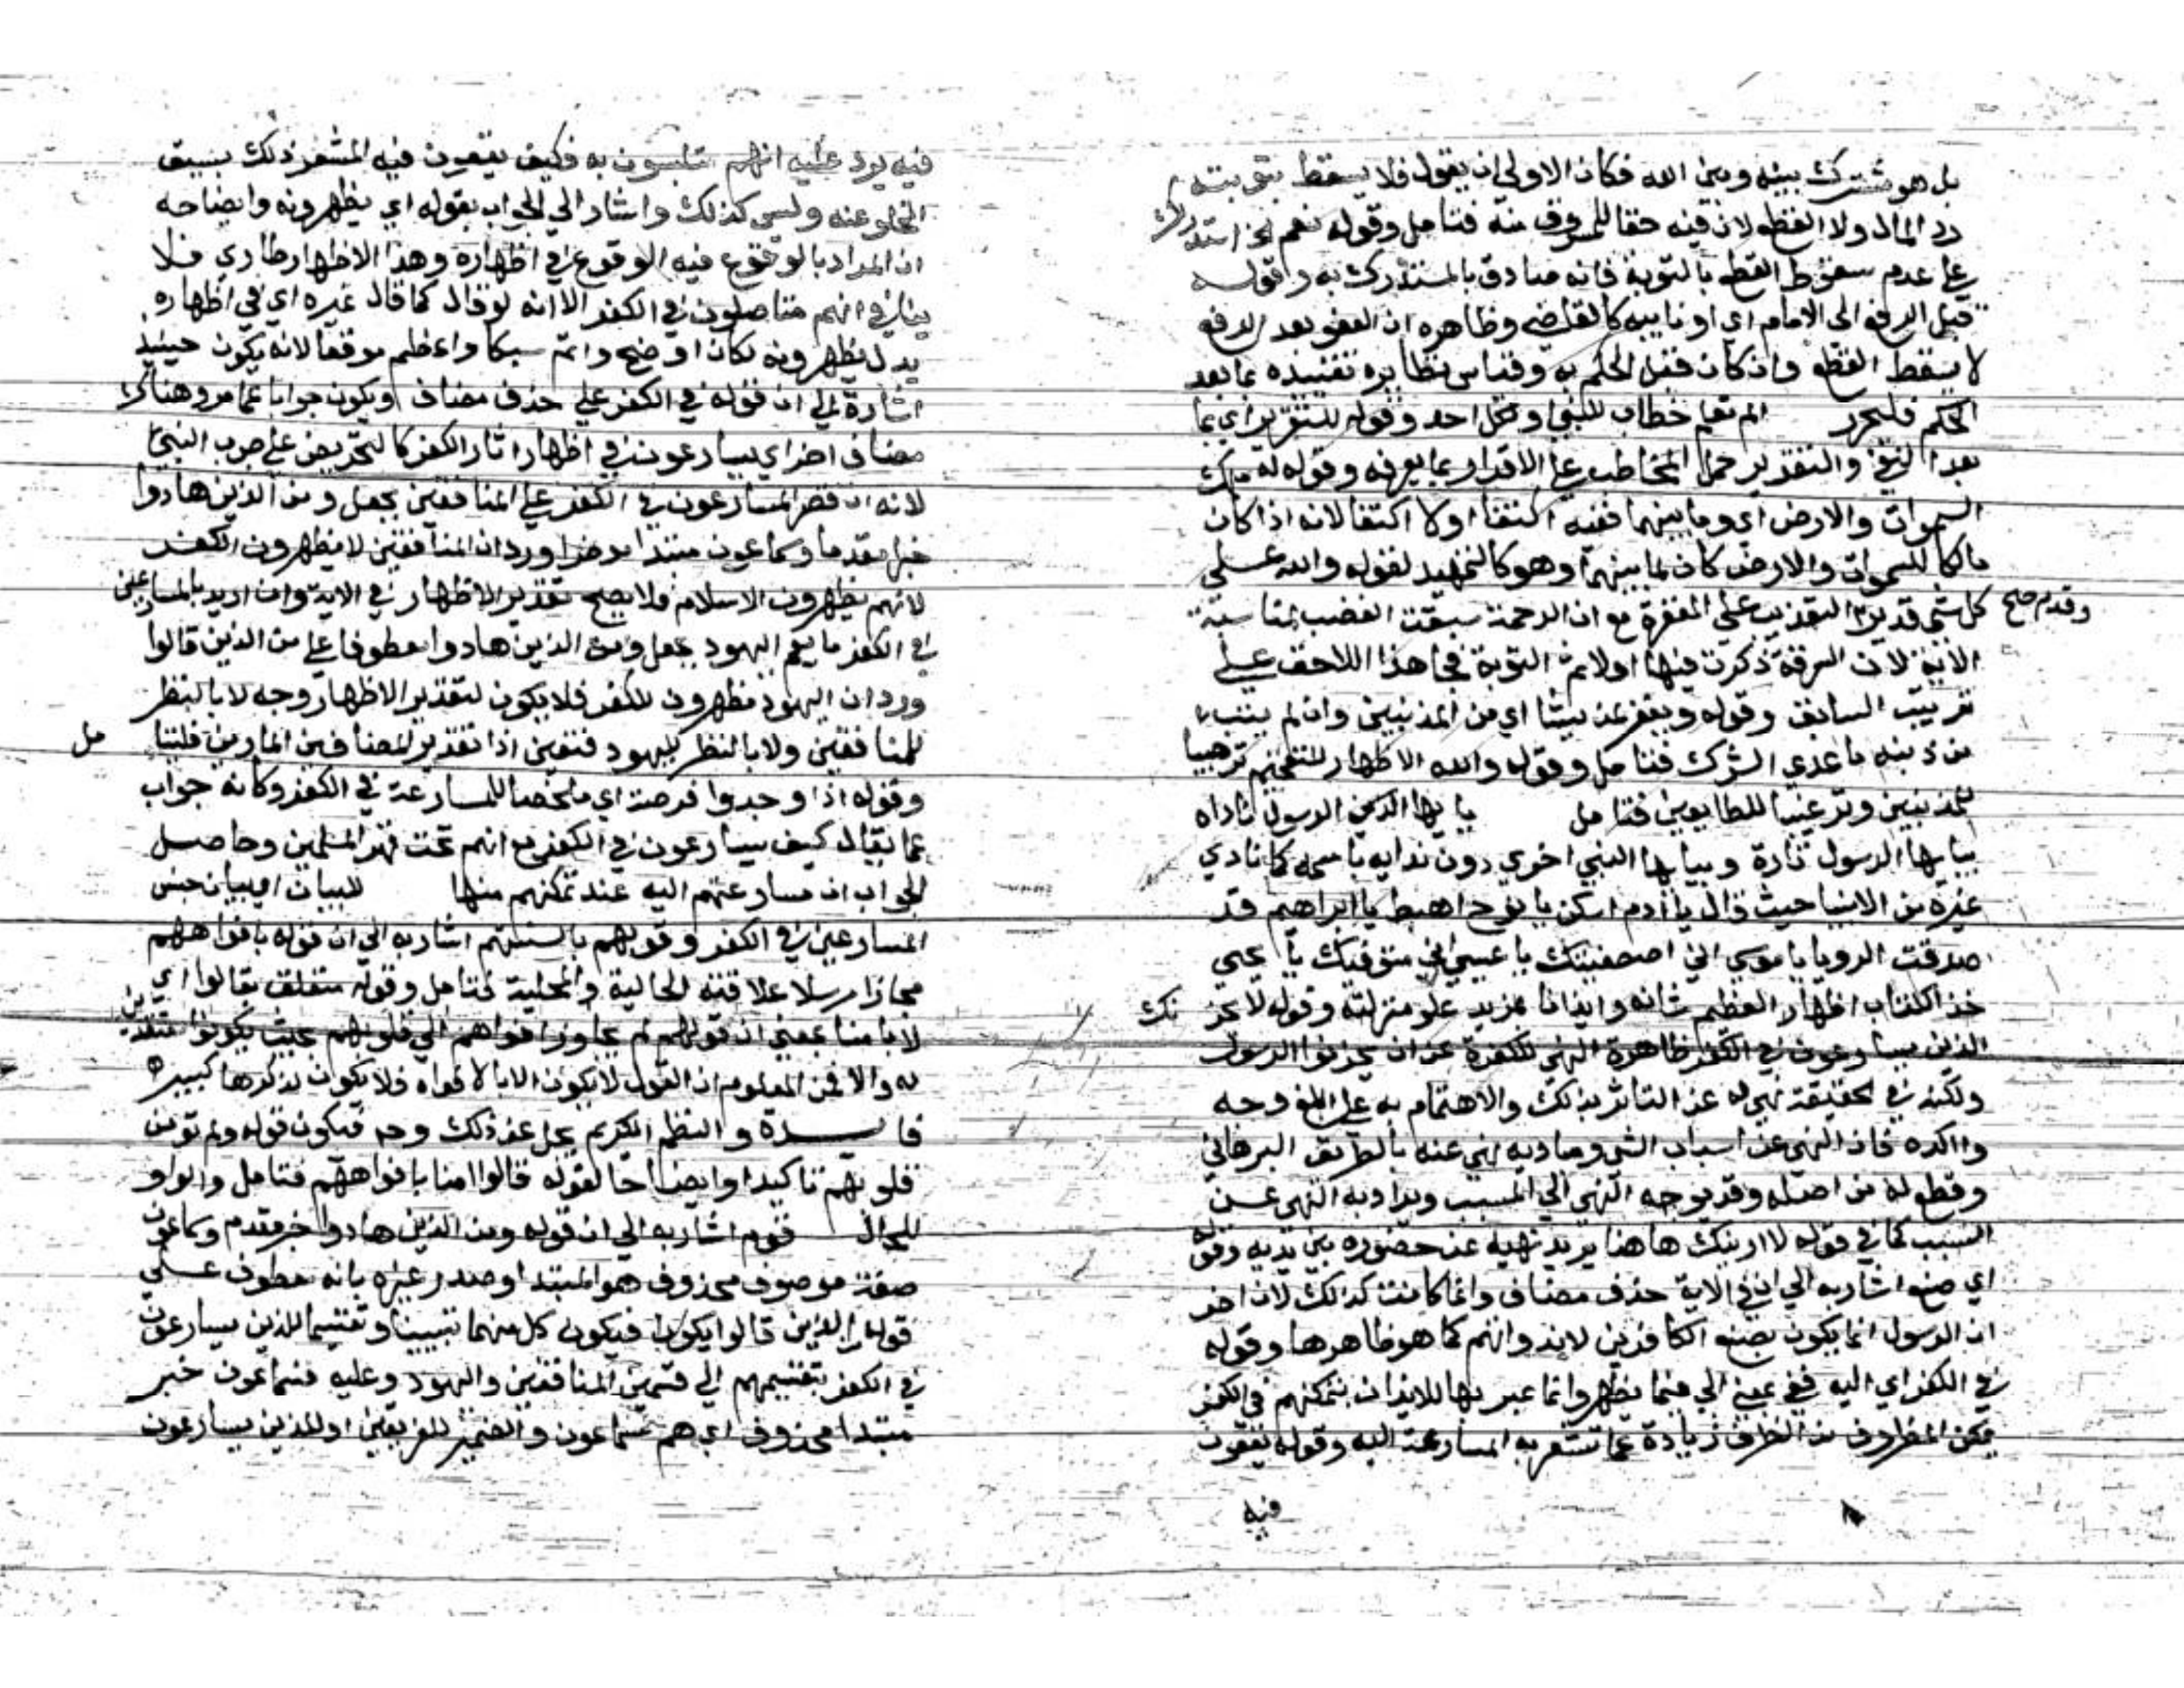 بل هو مشترك بينه وبين الله فكان الاولى ان يقول فلا يسقط بتوبته
رد المال ولا القطع لان فيه حقا للمسروق منه فتامل وقوله نعم الخ استدراك
على عدم سقوط القطع بالتوبة فانه صادق بالمستدرك به وقوله
قبل الرفع الى الامام اي او نايبه كالقاضي وظاهره ان العفو بعد الرفع
لا يسقط القطع وان كان قبل الحكم به وقياس نظايره تقييده بما بعد
الحكم فليحرر الم تعلم خطاب للنبي او لكل احد وقوله للتقرير اي بما
بعد النفي والتقدير حمل المخاطب على الاقرار بما يعرفه وقوله له ملك
السموات والارض اي وما بينهما ففيه اكتفا او لا اكتفا لانه اذا كان
مالكا للسموات والارض كان لما بينهما وهو كالتمهيد لقوله والله على
كل شي قدير وقدم التعذيب على المغفرة مع ان الرحمة سبقت الغضب لمناسبة
الاية لان السرقة ذكرت فيها اولا ثم التوبة فجا هذا اللاحق على
ترتيب السابق وقوله ويغفر لمن يشا اي من المذنبين وان لم يتب
من ذنبه ما عدى الشرك فتامل وقوله والله الاظهار للتفخيم ترهيبا
للمذنبين وترغيبا للطايعين فتامل يا يها الرسول ناداه
بيا يها الرسول تارة وبيا يها النبي اخري دون ندايه باسمه كما نادي
غيره من الانبيا حيث قال يا ادم اسكن يا نوح اهبط يا ابراهيم قد
صدقت الرويا يا موسي اني اصطفيتك يا عيسي اني متوفيك يا يحيي
خذ الكتاب اظهار العظيم شانه وايذانا بمزيد علو منزلته وقوله لا يحزنك
الذين يسارعون في الكفر ظاهره النهي للكفرة عن ان يحزنوا الرسول
ولكنه في الحقيقة نهي له عن التاثر بذلك والاهتمام به على ابلغ وجه
واكده فان النهي عن اسباب الشي ومباديه نهي عنه بالطريق البرهاني
وقطع له من اصله وقد يوجه النهي الي المسبب ويراد به النهي عن
السبب كما في قوله لا ارينك هاهنا يريد نهيه عن حضوره بين يديه وقوله
اي صنع اشار به الي ان في الاية حذف مضاف وانما كانت كذلك لان
الرسول انما يكون بصنع الكافرين لا بذواتهم كما هو ظاهرها وقوله
في الكفر اي اليه ففي بمعني الي وانما عبر بها للايذان بتمكنهم في الكفر
تمكن المظروف من الظرف زيادة عما تشعر به المسارعة اليه وقوله يقعون
فيه
فيه يرد عليه انهم متلبسون به فكيف يقعون فيه المشعر ذلك بسبق
الخلو عنه وليس كذلك واشار الي الجواب بقوله اي يظهرونه وايضاحه
ان المراد بالوقوع فيه الوقوع في اظهاره وهذا الاظهار طاري فلا
ينافي انهم متاصلون في الكفر الا انه لو قال كما قال غيره اي في اظهاره
بدل يظهرونه لكان اوضح واتم سبكا واعظم موقعا لانه يكون حينيذ
اشارة الي ان قوله في الكفر علي حذف مضاف ويكون جوابا عما مر وهناك
مضاف اخر اي يسارعون في اظهار اثار الكفر كالتحريض على حرب النبي
لانه ان قصر المسارعون في الكفر علي المنافقين بجعل ومن الذين هادوا
خبرا مقدما وسماعون مبتدا موخرا ورد ان المنافقين لا يظهرون الكفر
لانهم يظهرون الاسلام فلا يصح تقدير الاظهار في الاية وان اريد بالمسارعين
في الكفر ما يعم اليهود بجعل ومن الذين هادوا معطوفا علي من الذين قالوا
ورد ان اليهود مظهرون للكفر فلا يكون لتقدير الاظهار وجه لا بالنظر
للمنافقين ولا بالنظر لليهود فتعين اذا تقدير المضافين المارين فليتامل
وقوله اذا وجدوا فرصة اي مخلصا للمسارعة في الكفر وكانه جواب
عما يقال كيف يسارعون في الكفر مع انهم تحت قهر المسلمين وحاصل
الجواب ان مسارعتهم اليه عند تمكنهم منها للبيان اي بيان جنس
المسارعين في الكفر وقولهم بالسنتهم اشار به الي ان قوله بافواههم
مجازا مرسلا علاقته الحالية والمحلية فتامل وقوله متعلق بقالوا اي
لا بامنا بمعني ان قولهم لم يجاوز افواههم الي قلوبهم بحيث يكونوا معتقدين
له والا فمن المعلوم ان القول لا يكون الا بالافواه فلا يكون لذكرها كبير
فايدة والنظم الكريم يجل عن ذلك وح فيكون قوله ولم تومن
قلوبهم تاكيدا وايضاحا لقوله قالوا امنا بافواههم فتامل والواو
للحال قوم اشار به الي ان قوله ومن الذين هادوا خبر مقدم وسماعون
صفة موصوف محذوف هو المبتدا وصدر غيره بانه معطوف علي
قوله من الذين قالوا فيكون كل منهما تبيينا وتقسيما للذين يسارعون
في الكفر بتقسيمهم الي قسمين المنافقين واليهود وعليه فسماعون خبر
مبتدا محذوف اي هم سماعون والضمير للفريقين او للذين يسارعون